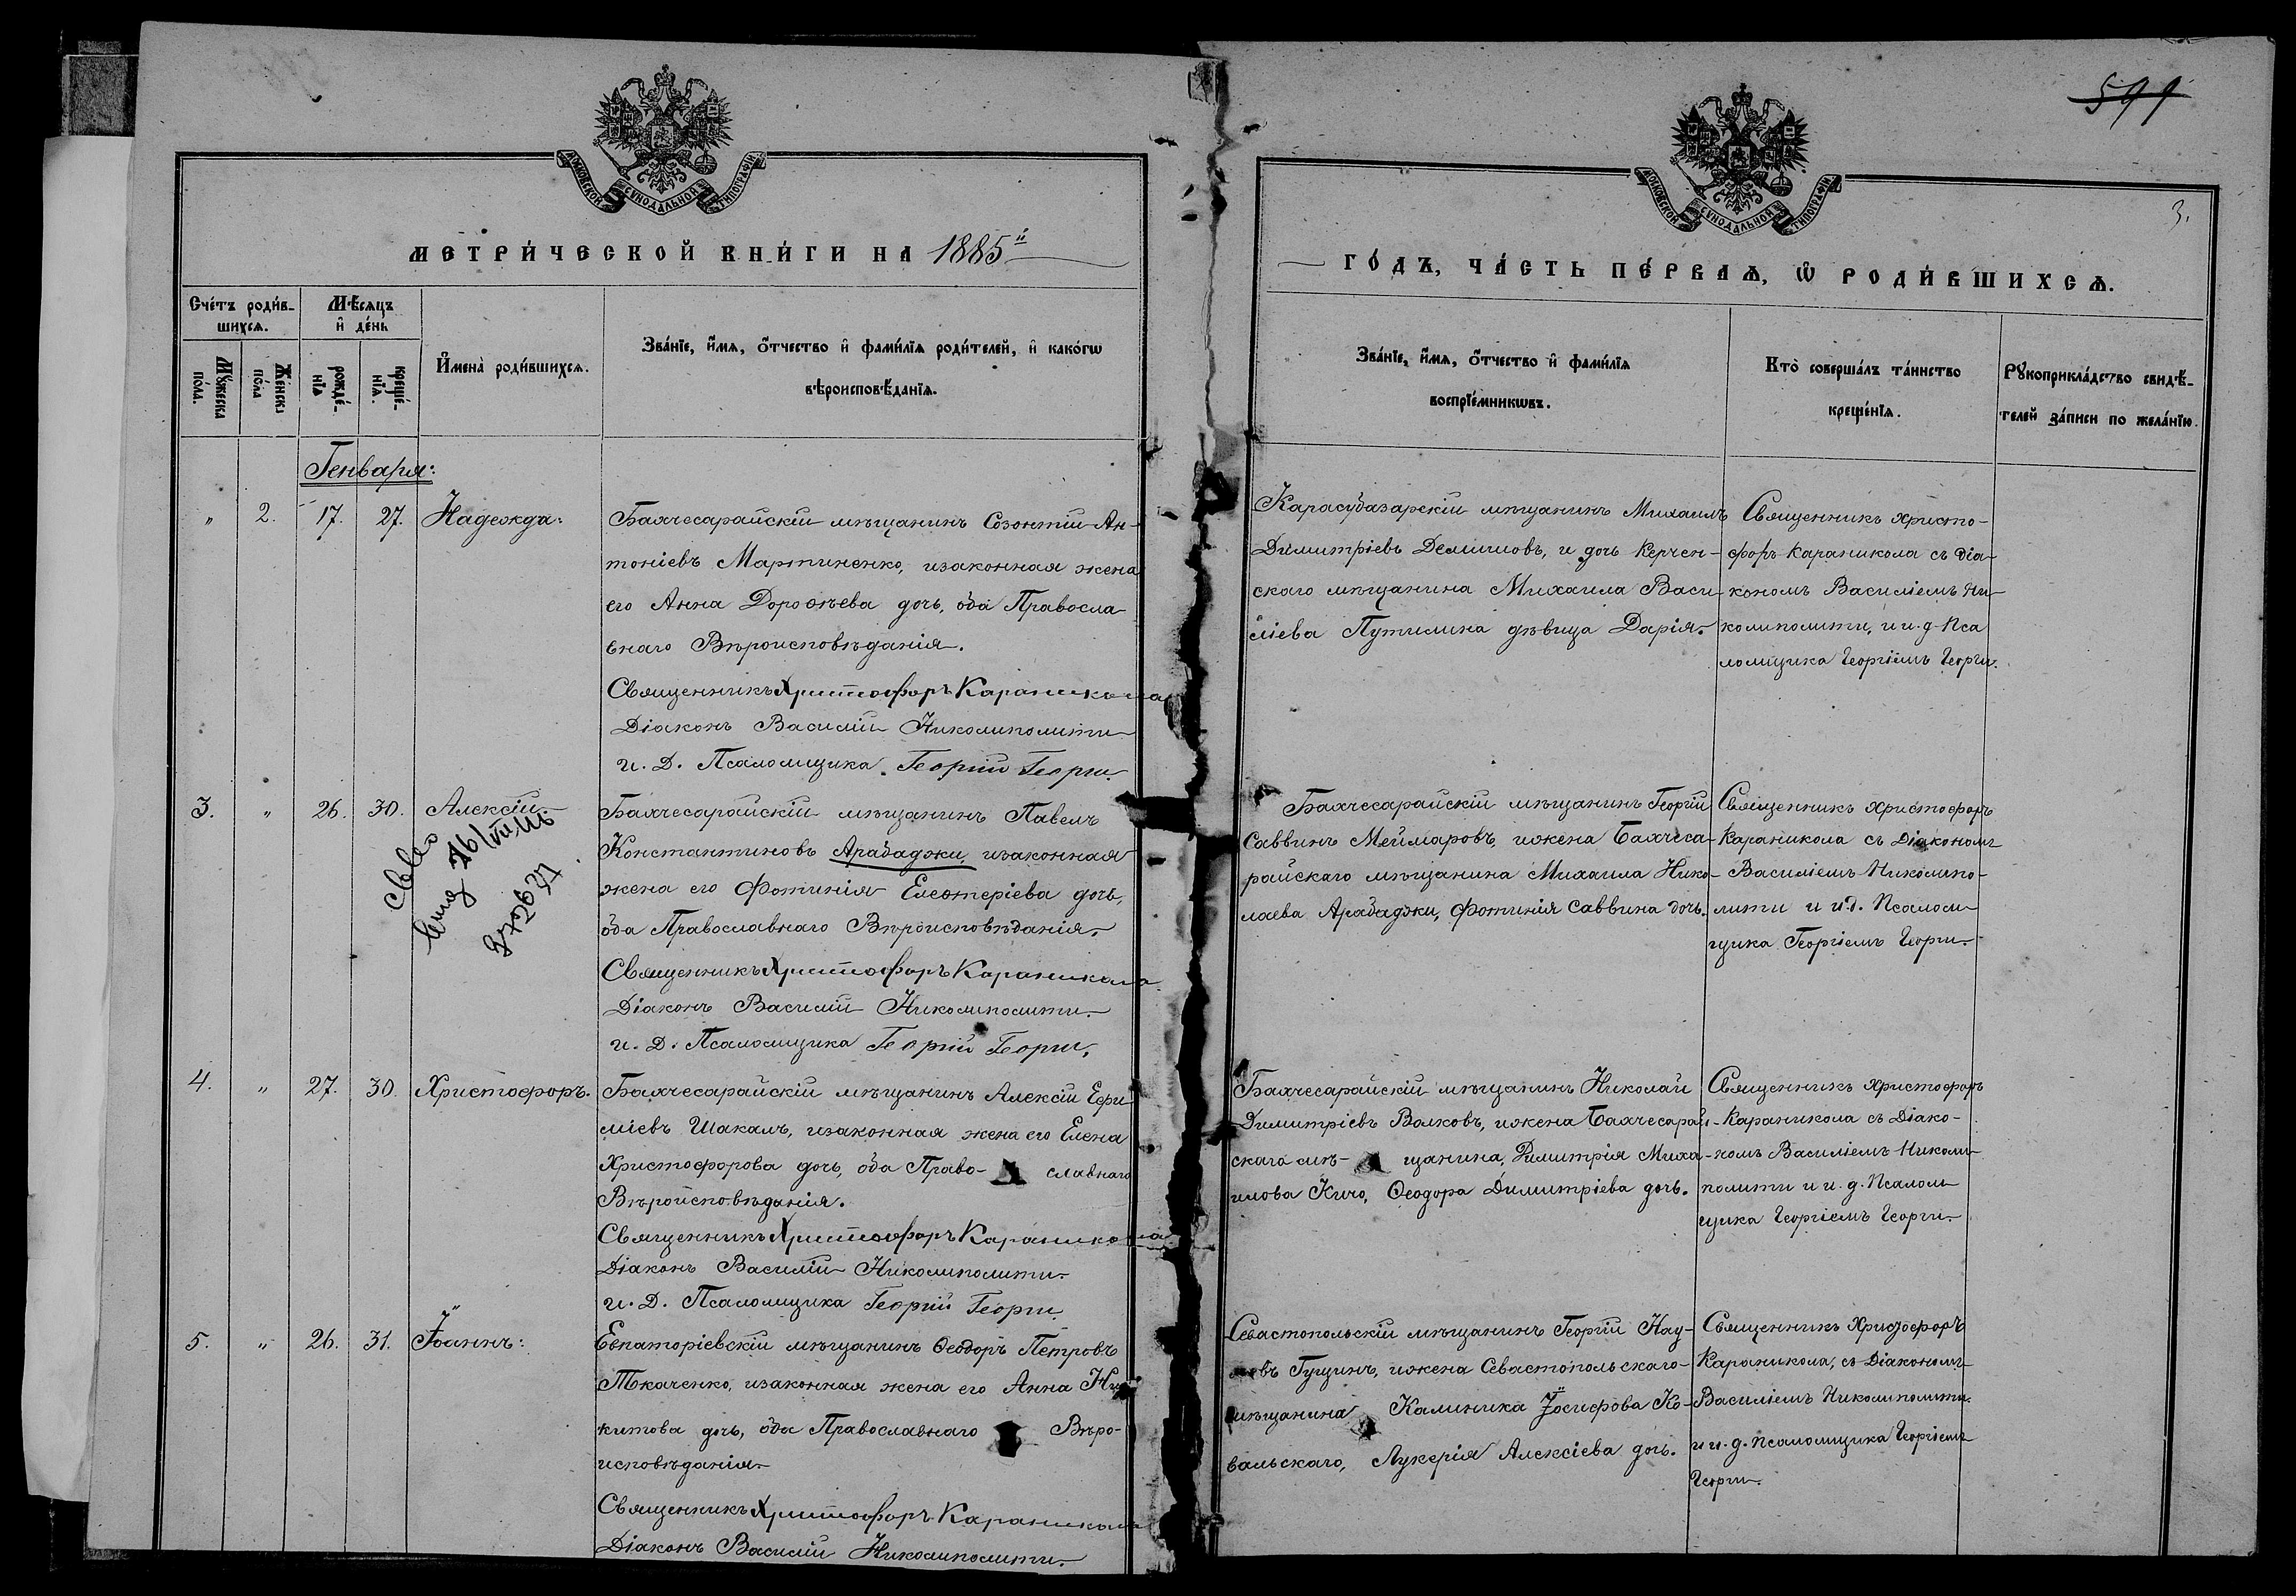 599
МОСКОВСКОЙ СѴНОДАЛЬНОЙ ТИПОГРАФІИ
МЕТРИ́ЧЕСКОЙ КНИ́ГИ НА 1885й
Сче́тъ роди́в-
шихсѧ.
Мѣ́сѧцъ
и҆ де́нь
Мꙋ́жеска
по́ла.
Же́нска
по́ла
рожде́-
нїѧ
креще́-
нїѧ.
И҆мена̀ роди́вшихсѧ.
Зва́нїе, и҆́мѧ, ѻ҆́тчество и҆ фами́лїѧ роди́телей, и҆ како́гѡ
вѣроисповѣ́данїѧ.
Генваря:
" 2. 17. 27. Надежда:
Бахчесарайскій мѣщанинъ Созонтій Ан-
тоніевъ Мартиненко, изаконная жена
его Анна Дороѳѣева дочь, оба Правосла-
внаго Вѣроисповѣданія.
Священникъ Христофоръ Караникола
Діаконъ Василій Николиполити
и. Д. Псаломщика Георгій Георги.
3. " 26. 30. Алексій
Бахчесарайскій мѣщанинъ Павелъ
Константиновъ Арабаджи, изаконная
жена его Фотинія Елеѳтеріева дочь,
оба Православнаго Вѣроисповѣданія.
Священникъ Христофоръ Караникола
Діаконъ Василій Николиполити.
и. Д. Псаломщика Георгій Георги.
4. " 27. 30. Христофоръ.
Бахчесарайскій мѣщанинъ Алексій Ефи-
міевъ Шакалъ, изаконная жена его Елена
Христофорова дочь, оба Право- славнаго
Вѣроисповѣданія.
Священникъ Христофоръ Караникола
Діаконъ Василій Николиполити.
и. Д. Псаломщика Георгій Георги.
5. " 26. 31. Іоаннъ:
Евпаторіевскій мѣщанинъ Ѳеодоръ Петровъ
Ткаченко, изаконная жена его Анна Ни-
китова дочь, оба Православнаго Вѣро-
исповѣданія.
Священникъ Христофоръ Караникола
Діаконъ Василій Николиполити.
МОСКОВСКОЙ СѴНОДАЛЬНОЙ ТИПОГРАФІИ
3.
ГО́ДЪ, ЧА́СТЬ ПЕ́РВАѦ, Ѽ РОДИ́ВШИХСѦ.
Зва́нїе, и҆́мѧ, ѻ҆́тчество и҆ фами́лїѧ
воспрїе́мникѡвъ.
Кто̀ соверша́лъ та́инство
креще́нїѧ.
Рꙋкоприкла́дство свидѣ́-
телей за́писи по жела́нїю.
Карасубазарскій мѣщанинъ Михаилъ
Димитріевъ Демишовъ, и дочь Керчен-
скаго мѣщанина Михаила Васи-
ліева Путилина дѣвица Дарія.
Священникъ Христо-
форъ Караникола съ діа-
кономъ Василіемъ Ни-
колиполити, и и. д. Пса
ломщика Георгіемъ Георги.
Бахчесарайскій мѣщанинъ Георгій
Саввинъ Меймаровъ, ижена Бахчеса-
райскаго мѣщанина Михаила Нико-
лаева Арабаджи, Фотинія Саввина дочь.
Священникъ Христофоръ
Караникола съ Діакономъ
Василіемъ Николипо-
лити и и.д. Псалом-
щика Георгіемъ Георги.
Бахчесарайскій мѣщанинъ Николай
Димитріевъ Волковъ, ижена Бахчесарай-
скаго мѣ- щанина, Димитрія Миха-
илова Кичо, Ѳеодора Димитріева дочь.
Священникъ Христофоръ
Караникола съ Діако-
номъ Василіемъ Николи-
полити и и. д. Псалом-
щика Георгіемъ Георги.
Севастопольскій мѣщанинъ Георгій Нау-
мовъ Гущинъ, ижена Севастопольскаго
мѣщанина Калиника Іосифова Ко-
вальскаго, Лукерія Алексіева дочь.
Священникъ Христофоръ
Караникола, съ Діакономъ
Василіемъ Николиполити.
и и. д. псаломщика Георгіемъ
Георги.